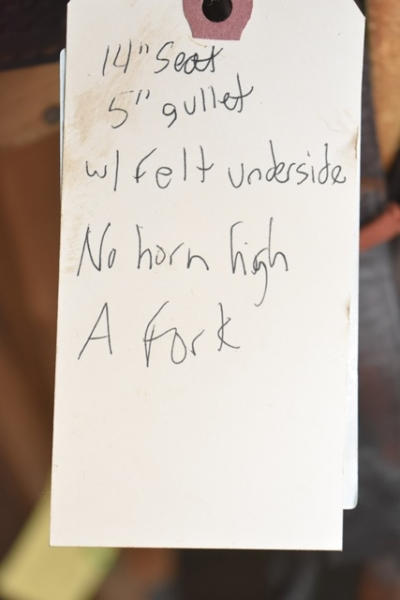 14" Seat
5" gullet
w/ Felt underside
No horn high
A Fork